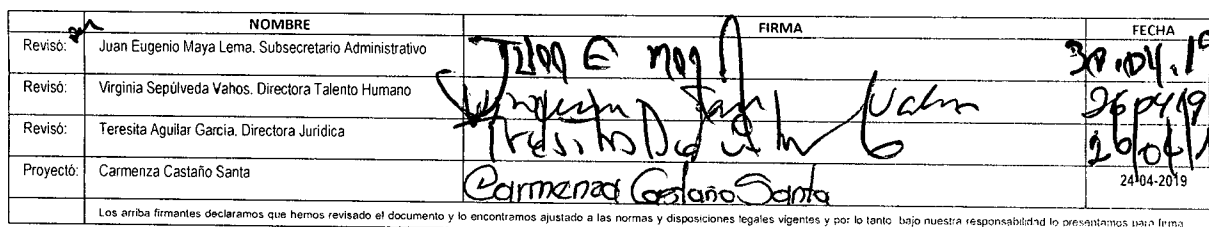 NOMBRE FIRMA FECHA
Revisó: Juan Eugenio Maya Lema. Subsecretario Administrativo 30.04.19
Revisó: Virginia Sepúlveda Vahos. Directora Talento Humano 260419
Revisó: Teresita Aguilar Garcia. Directora Jurídica 26/04/
Proyectó: Carmenza Castaño Santa Carmenza Castaño Santa 24-04-2019
Los arriba firmantes declaramos que hemos revisado el documento y lo encontramos ajustado a las normas y disposiciones legales vigentes y por lo tanto bajo nuestra responsabilidad lo presentamos para firma